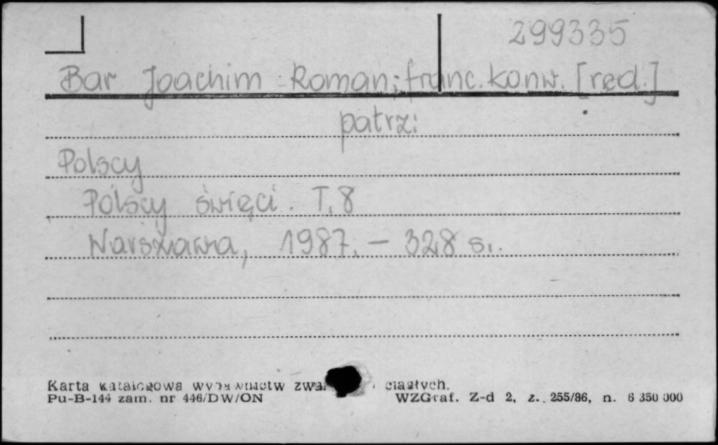 299335
Bar Joachim Roman; franc. konw. [red.]
patrz:
Polscy
Polscy święci. T. 8
Warszawa, 1987. – 328 s.
Karta katalogowa wydawnictw ciągłych.
Pu-B-144 zam. nr 446/DW/ON WZGraf. Z-d 2, z. 255/86, n. 6 350 000